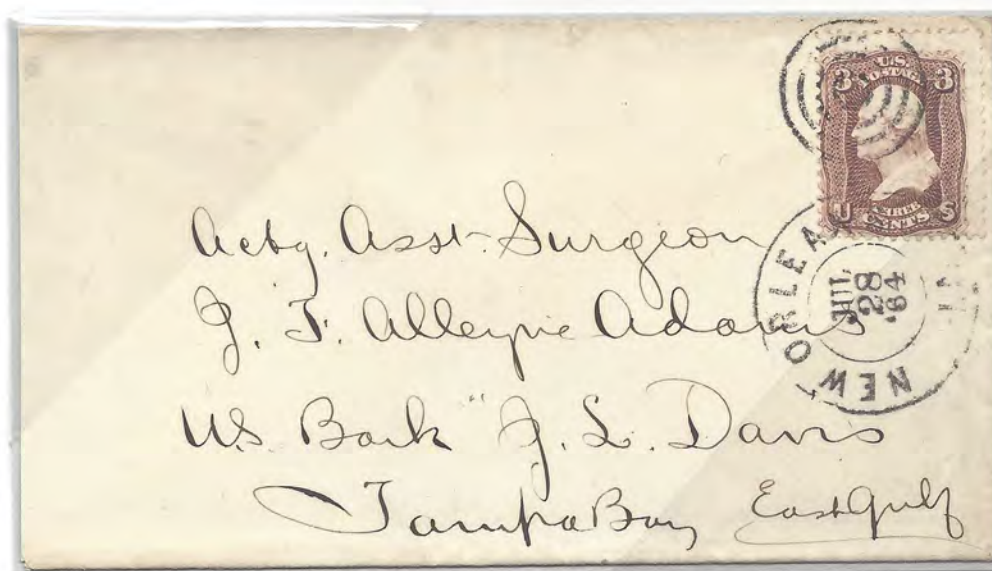 3 U.S. POSTAGE 3
U THREE CENTS S
NEW ORLEA
JUL
28
'64
Actg. Asst. Surgeon
J. F. Alleyne Adams
U.S. Bark "J. L. Davis
Tampa Bay East Gulf